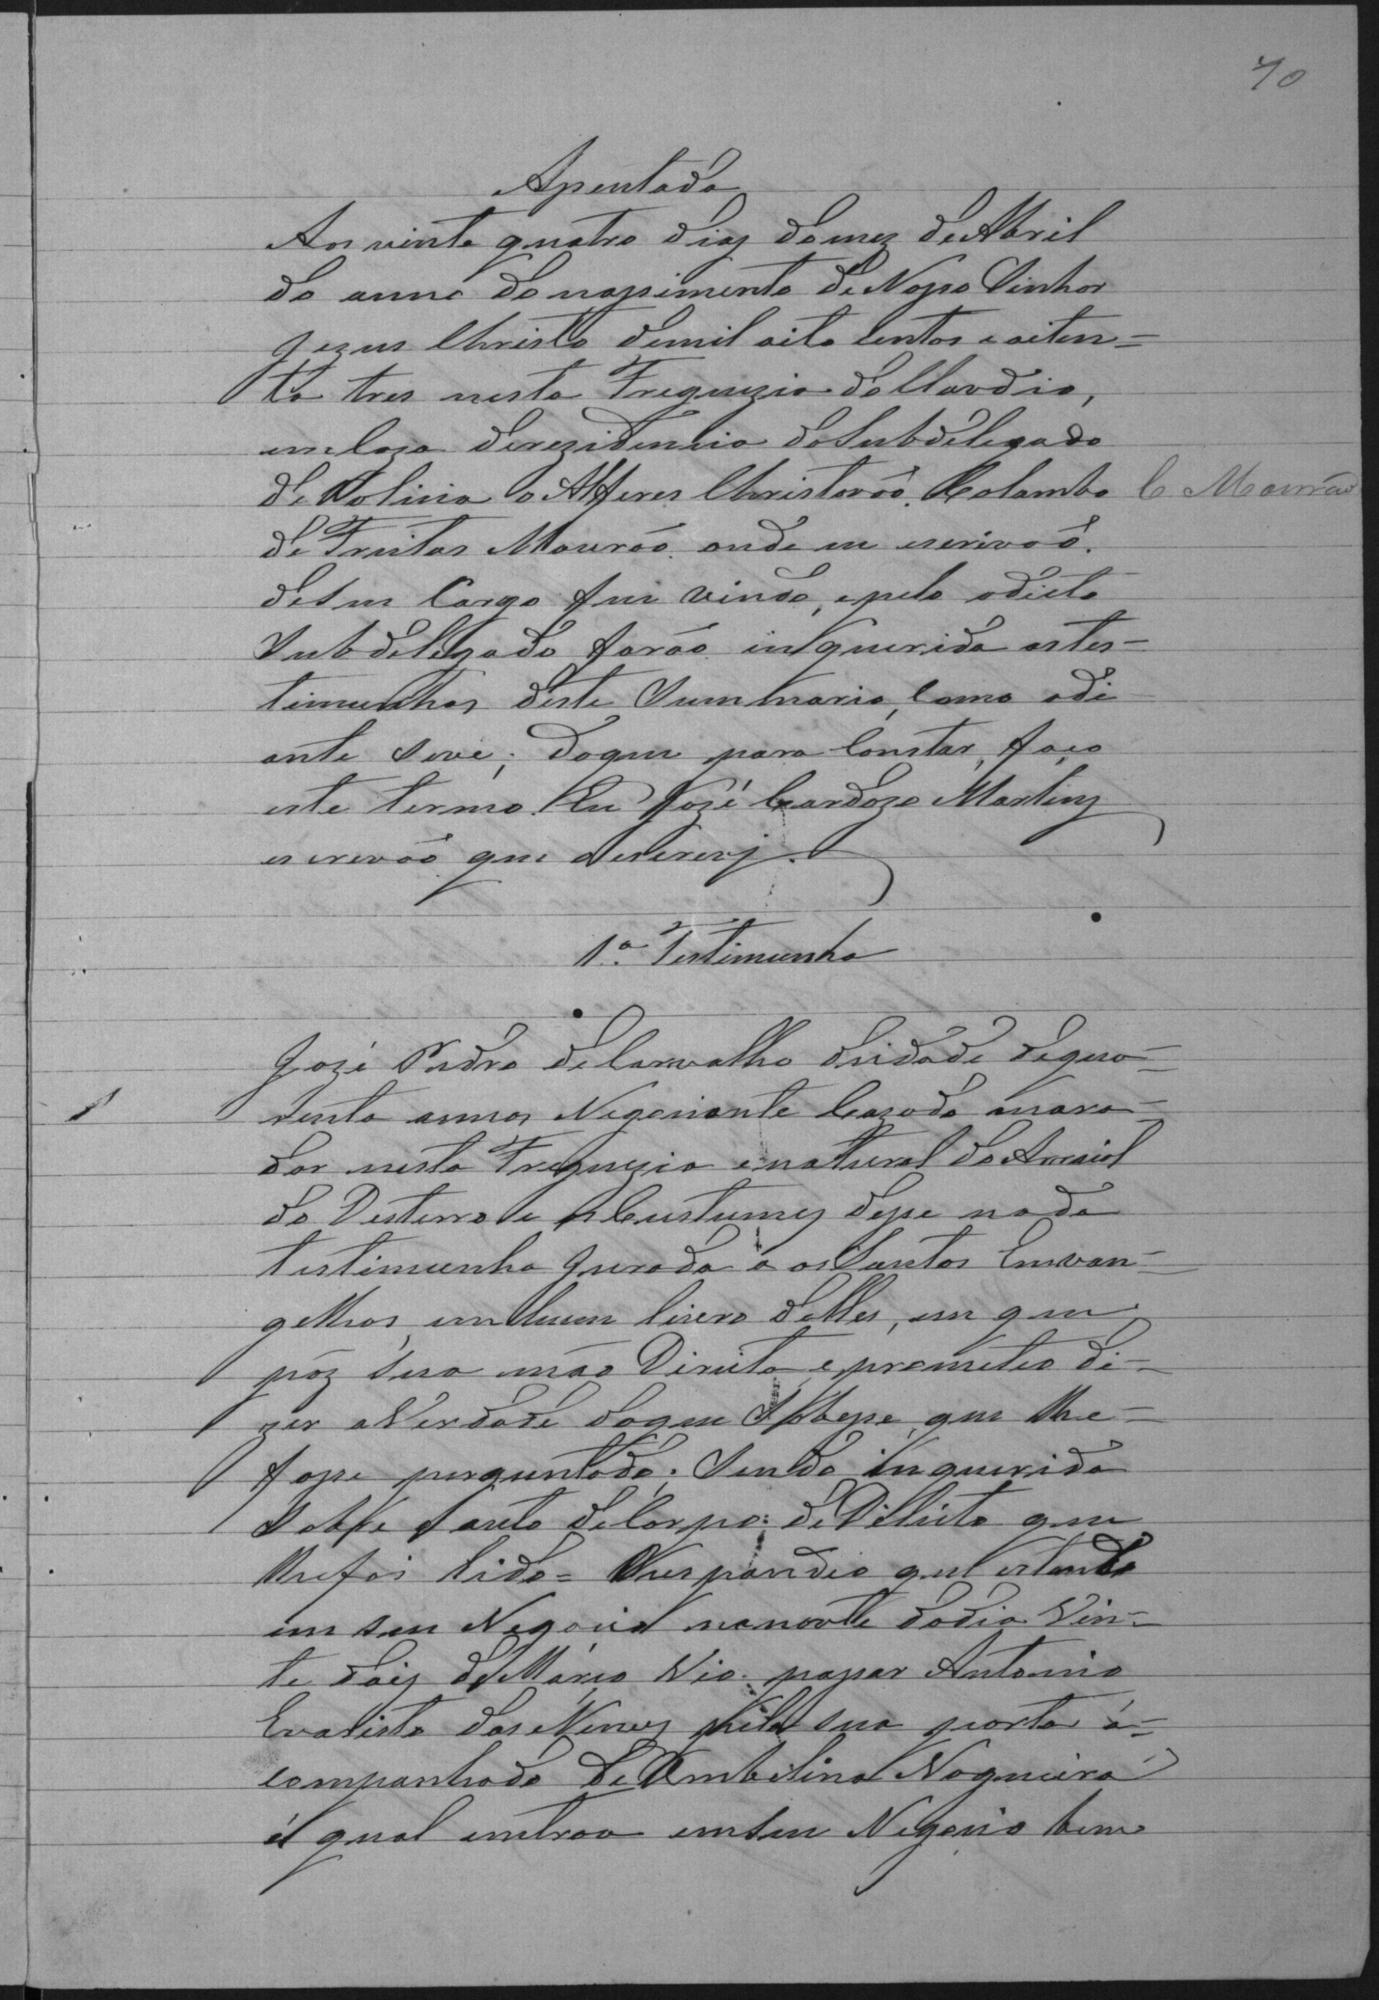 10
Apentada
Aos vinte quatro dias do mez de Abril
do anno do nassimento de Nosso Sinhor
Jezus Christo de mil oito centos e oiten=
ta tres nesta Freguezia do Claudio,
em Caza de rezidencia do Subdelegado
de Policia o Alferes Christovão Colombo C Mourão
de Freitas Mourão onde eu escrivão
de seu Cargo fui vindo, e pelo o dicto
Subdelegado forão inquerida as tes-
timunhas deste Summario, Como adi
ante seve; do que para Constar, faço
este termo. Eu Jozé Cardozo Martins
escrevão que o escrevj.
1ª Testimunha
Jozé Pedro de Carvalho de idade de qua=
renta annos Negociante Cazado mora=
dor nesta Freguezia e natural do Arraial
do Desterro e os Custumes disse nada
testimunha jurada a os Santos Envan=
gelhos, em hum livro delles, em que
pôz sua mão Direita e prometeo di=
zer a Verdade do que Soubesse que lhe=
fosse perguntado; Sendo inquerida
Sobre o auto de Corpo de Dellicto que
lhe foi lido= Respondio que estando
em seu Negocio na noute do dia Vin=
te dois de Março Vio passar Antonio
Evaristo das Neves pela sua porta a=
companhado de Umbilina Nogueira
a qual entrou em seu Negocio bem